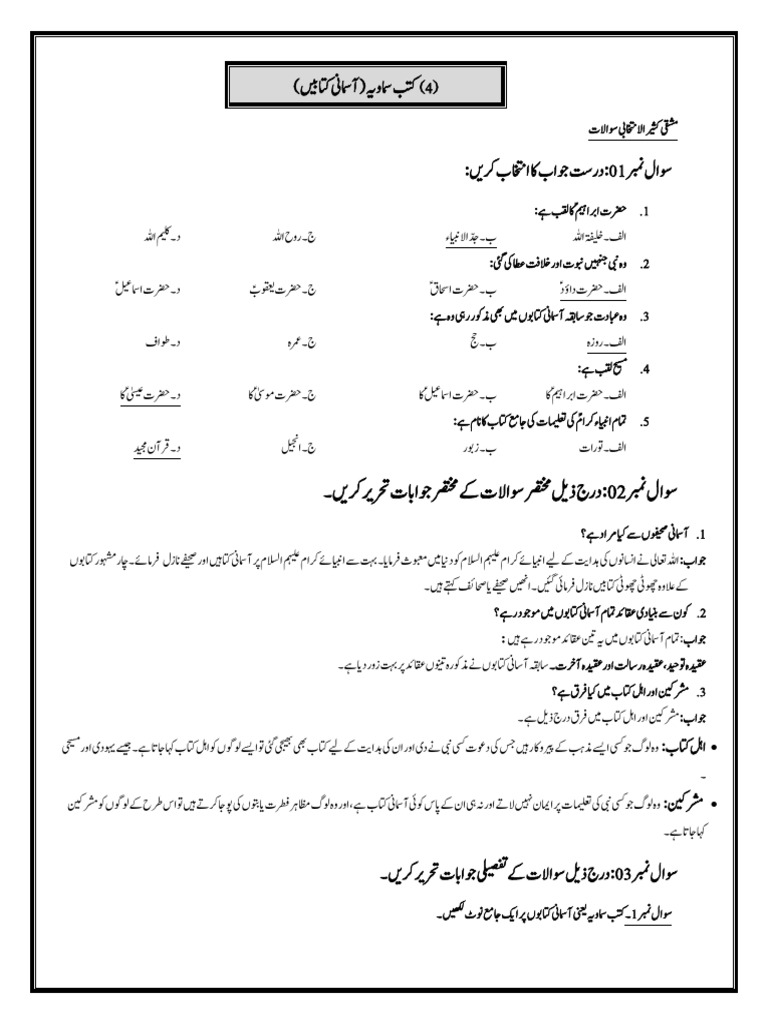 (4) کتب سماویہ (آسمانی کتابیں)
مشقی کثیر الانتخابی سوالات
سوال نمبر 01: درست جواب کا انتخاب کریں:
1. حضرت ابراہیمؑ کا لقب ہے:
الف۔ خلیفۃ اللہ ب۔ جدّ الانبیاء ج۔ روح اللہ د۔ کلیم اللہ
2. وہ نبی جنہیں نبوت اور خلافت عطا کی گئی:
الف۔ حضرت داؤدؑ ب۔ حضرت اسحاقؑ ج۔ حضرت یعقوبؑ د۔ حضرت اسماعیلؑ
3. وہ عبادت جو سابقہ آسمانی کتابوں میں بھی مذکور رہی وہ ہے:
الف۔ روزہ ب۔ حج ج۔ عمرہ د۔ طواف
4. مسیح لقب ہے:
الف۔ حضرت ابراہیمؑ کا ب۔ حضرت اسماعیلؑ کا ج۔ حضرت موسیٰؑ کا د۔ حضرت عیسیٰؑ کا
5. تمام انبیاء کرامؑ کی تعلیمات کی جامع کتاب کا نام ہے:
الف۔ تورات ب۔ زبور ج۔ انجیل د۔ قرآن مجید
سوال نمبر 02: درج ذیل مختصر سوالات کے مختصر جوابات تحریر کریں۔
1. آسمانی صحیفوں سے کیا مراد ہے؟
جواب: اللہ تعالی نے انسانوں کی ہدایت کے لیے انبیائے کرام علیہم السلام کو دنیا میں مبعوث فرمایا۔ بہت سے انبیائے کرام علیہم السلام پر آسمانی کتابیں اور صحیفے نازل فرمائے۔ چار مشہور کتابوں
کے علاوہ چھوٹی چھوٹی کتابیں نازل فرمائی گئیں۔ انھیں صحیفے یا صحائف کہتے ہیں۔
2. کون سے بنیادی عقائد تمام آسمانی کتابوں میں موجود رہے؟
جواب: تمام آسمانی کتابوں میں یہ تین عقائد موجود رہے ہیں:
عقیدہ توحید، عقیدہ رسالت اور عقیدہ آخرت۔ سابقہ آسمانی کتابوں نے مذکورہ تینوں عقائد پر بہت زور دیا ہے۔
3. مشرکین اور اہل کتاب میں کیا فرق ہے؟
جواب: مشرکین اور اہل کتاب میں فرق درج ذیل ہے۔
• اہل کتاب: وہ لوگ جو کسی ایسے مذہب کے پیروکار ہیں جس کی دعوت کسی نبی نے دی اور ان کی ہدایت کے لیے کتاب بھی بھیجی گئی تو ایسے لوگوں کو اہل کتاب کہا جاتا ہے۔ جیسے یہودی اور مسیحی
۔
• مشرکین: وہ لوگ جو کسی نبی کی تعلیمات پر ایمان نہیں لاتے اور نہ ہی ان کے پاس کوئی آسمانی کتاب ہے، اور وہ لوگ مظاہر فطرت یا بتوں کی پوجا کرتے ہیں تو اس طرح کے لوگوں کو مشرکین
کہا جاتا ہے۔
سوال نمبر 03: درج ذیل سوالات کے تفصیلی جوابات تحریر کریں۔
سوال نمبر 1۔ کتب سماویہ یعنی آسمانی کتابوں پر ایک جامع نوٹ لکھیں۔